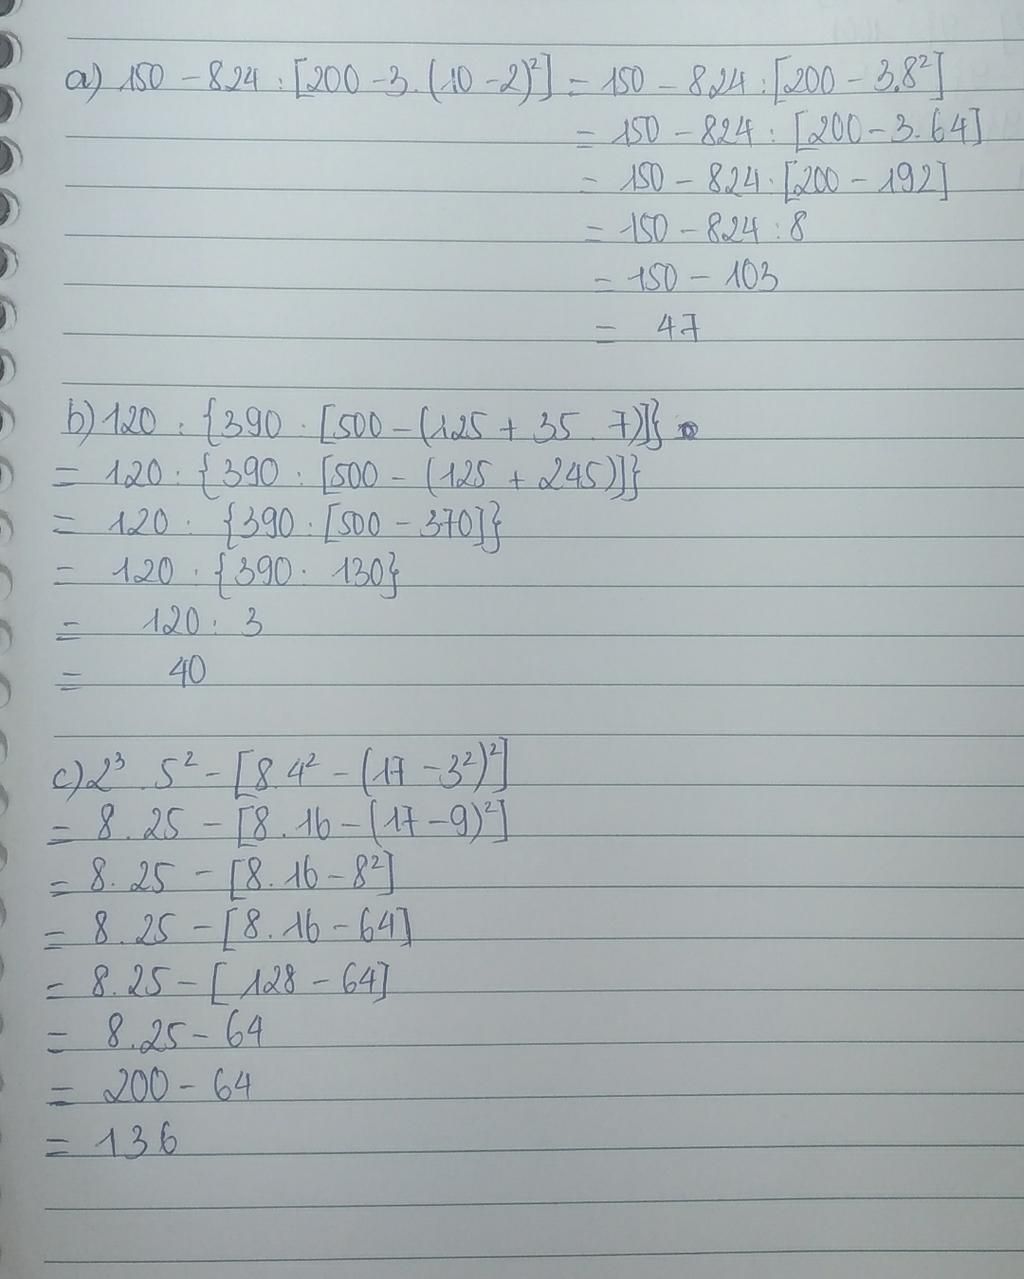 a) 150 - 824 : [200 - 3 . (10 - 2)²] = 150 - 824 : [200 - 3.8²]
= 150 - 824 : [200 - 3. 64]
= 150 - 824 : [200 - 192]
= 150 - 824 : 8
= 150 - 103
= 47
b) 120 : {390 : [500 - (125 + 35 . 7)]}
= 120 : {390 : [500 - (125 + 245)]}
= 120 : {390 : [500 - 370]}
= 120 : {390 : 130}
= 120 : 3
= 40
c) 2³ . 5² - [8.4² - (17 - 3²)²]
= 8 . 25 - [8 . 16 - (17 - 9)²]
= 8. 25 - [8. 16 - 8²]
= 8 . 25 - [8. 16 - 64]
= 8.25 - [128 - 64]
= 8.25 - 64
= 200 - 64
= 136